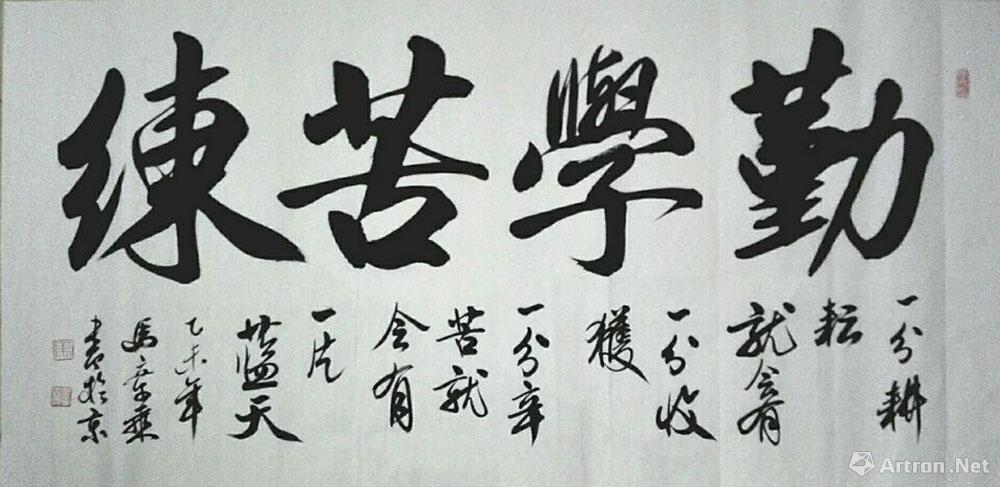 勤學苦練
一分耕
耘
就会有
一分收
獲
一分辛
苦就
会有
一片
蓝天
乙未年
馬章乘
书於京
Artron.Net